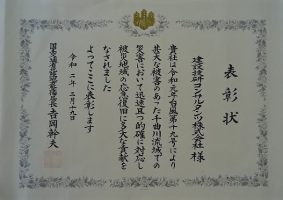 表彰状
建設技研コンサルタンツ株式会社 様
貴社は令和元年台風第十九号により
甚大な被害のあった千曲川流域での
災害において迅速且つ的確に対応し
被災地域の応急復旧に多大な貢献を
なされました
よってここに表彰します
令和二年二月十九日
国土交通省北陸地方整備局長 吉岡幹夫